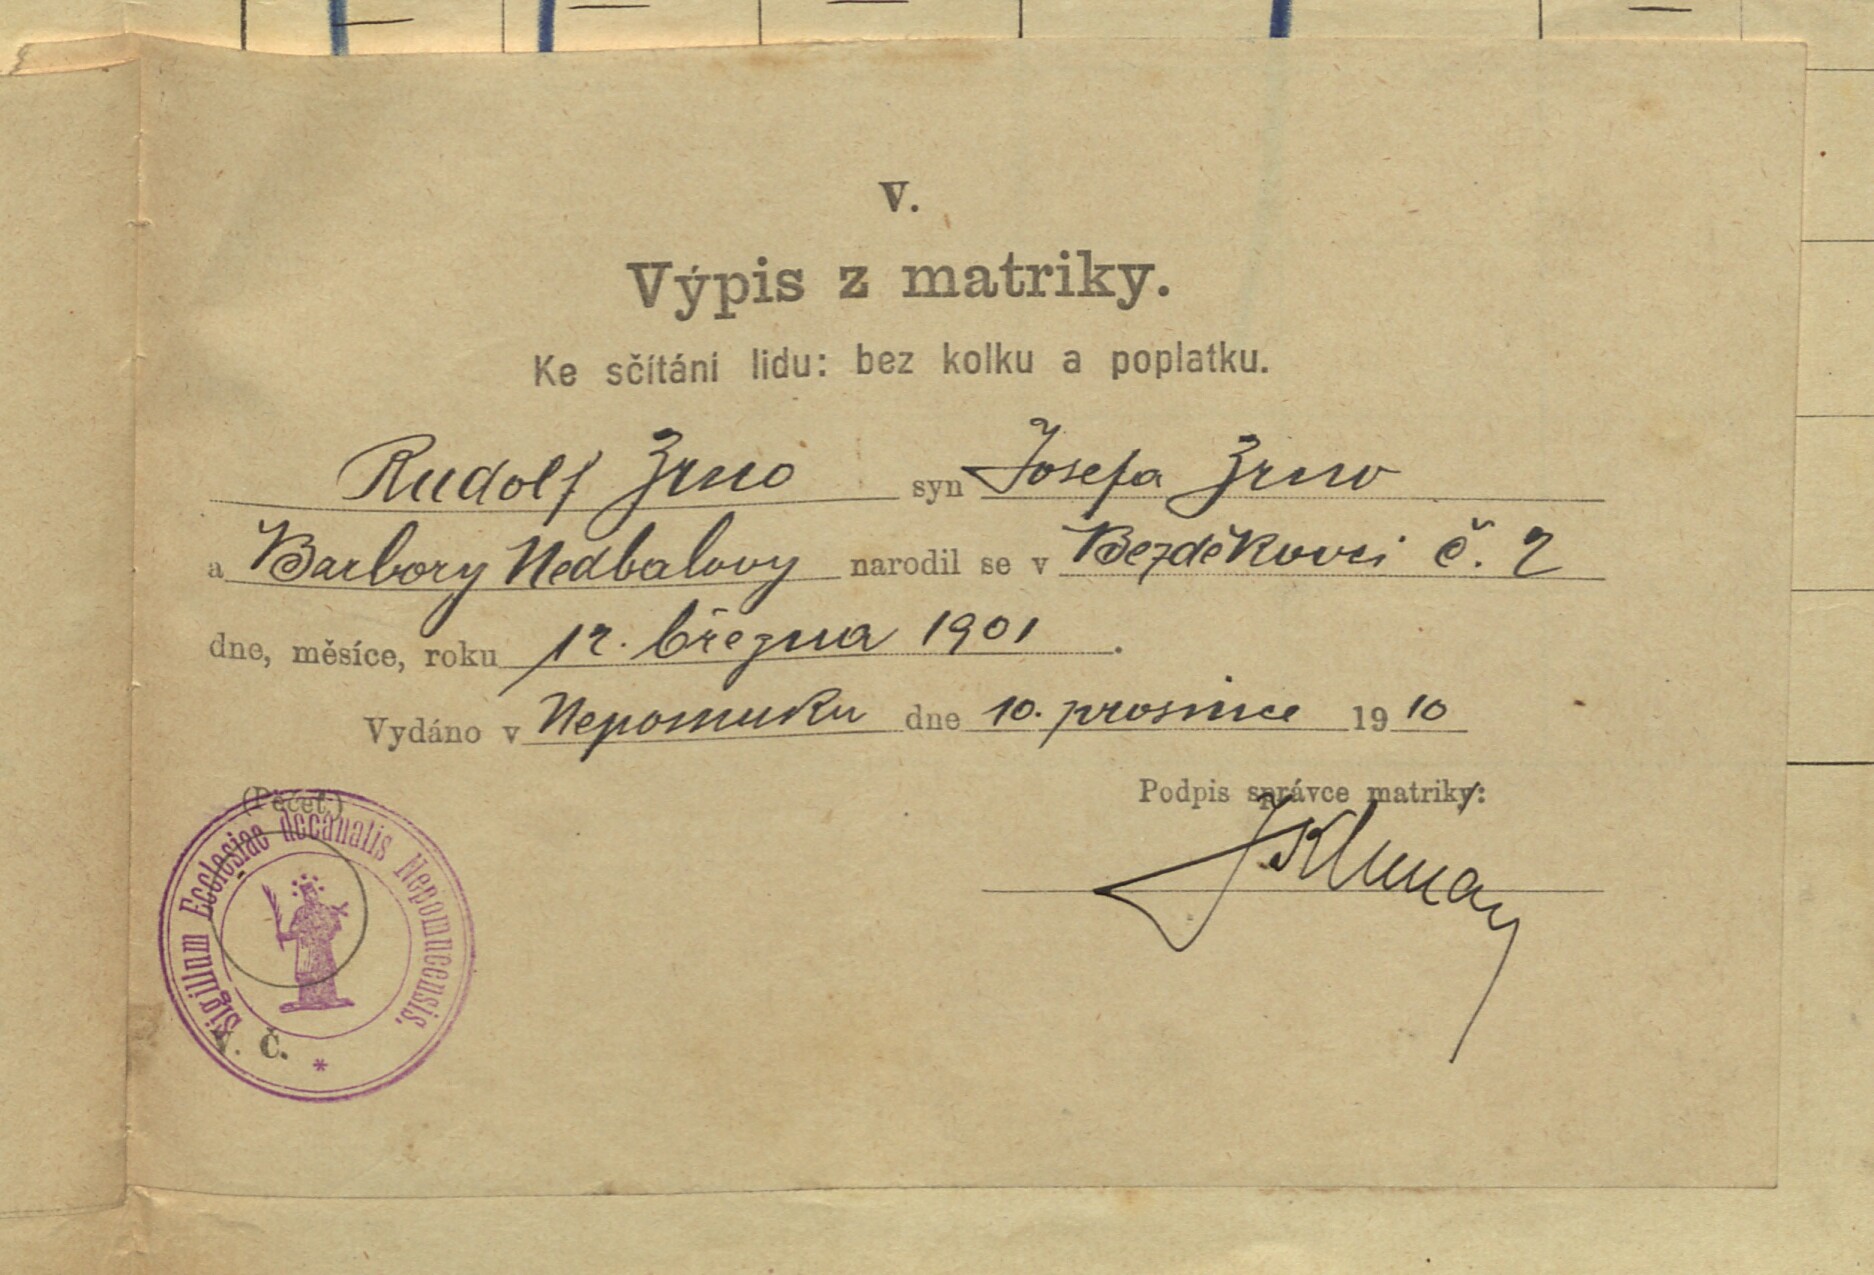 V.
Výpis z matriky.
Ke sčítání lidu: bez kolku a poplatku.
Rudolf Zrno syn Josefa Zrno
a Barbory Nedbalovy narodil se v Bezděkovci č. 2
dne, měsíce, roku 12. března 1901.
Vydáno v Nepomuku dne 10. prosince 1910
(Pečeť.)
Podpis správce matriky:
Sigillum Ecclesiae decanalis Nepomucensis.
V. č.
*